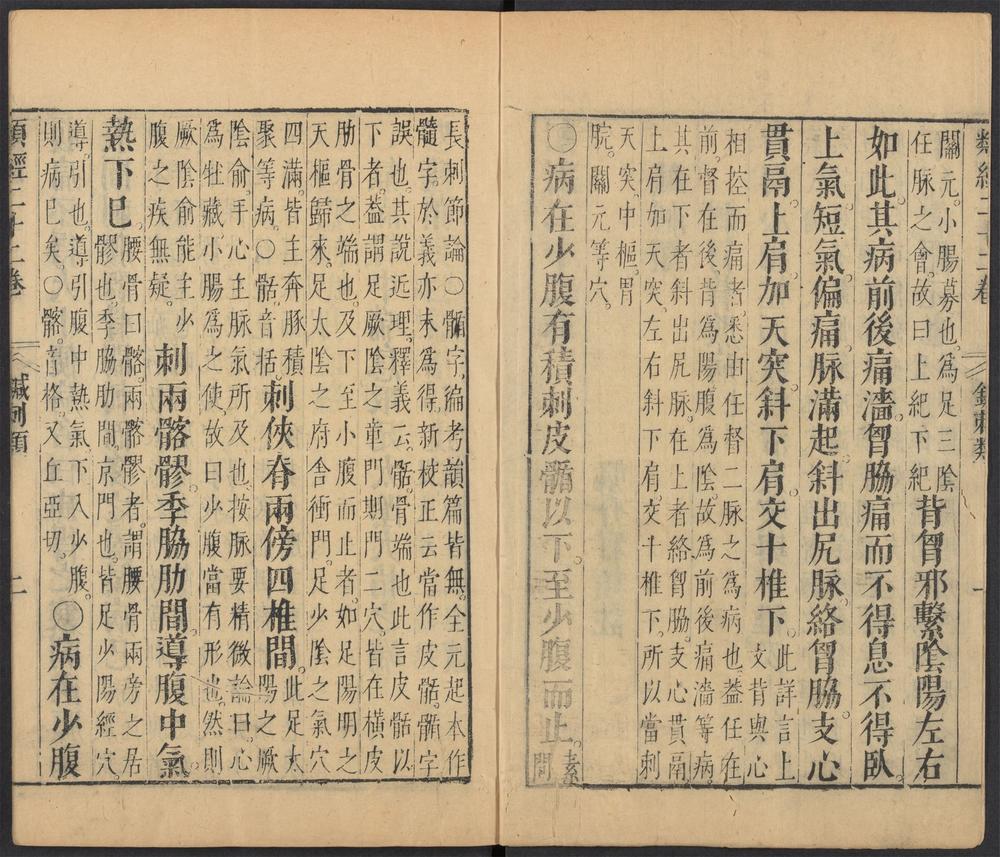 類經二十二卷　鍼刺類　一
關元小腸募也爲足三陰
任脈之會故曰上紀下紀
背胷邪繫陰陽左右
如此其病前後痛濇胷脇痛而不得息不得臥
上氣短氣偏痛脈滿起斜出尻脈絡胷脇支心
貫鬲上肩加天突斜下肩交十椎下
此詳言上
文背與心
相控而痛者悉由任督二脈之爲病也葢任在
前督在後背爲陽腹爲陰故爲前後痛濇等病
其在下者斜出尻脈在上者絡胷脇支心貫鬲
上肩加天突左右斜下肩交十椎下所以當刺
天突中樞胃
脘關元等穴
〇病在少腹有積刺皮𩩻以下至少腹而止
素
問
長刺節論〇𩩻字徧考韻篇皆無全元起本作
髓字於義亦未爲得新校正云當作皮骺𩩻字
誤也其說近理釋義云骺骨端也此言皮骺以
下者葢謂足厥陰之章門期門二穴皆在橫皮
肋骨之端也及下至小腹而止者如足陽明之
天樞歸來足太陰之府舍衝門足少陰之氣穴
四滿皆主奔豚積
聚等病〇骺音括
刺俠脊兩傍四椎間
此足太
陽之厥
陰俞手心主脈氣所及也按脈要精微論曰心
爲牡藏小腸爲之使故曰少腹當有形也然則
厥陰俞能主少
腹之疾無疑
刺兩髂髎季脇肋間導腹中氣
熱下已
腰骨曰髂兩髂髎者謂腰骨兩旁之居
髎也季脇肋間京門也皆足少陽經穴
導引也導引腹中熱氣下入少腹
則病已矣〇髂音格又丘亞切
〇病在少腹
類經二十二卷　鍼刺類　二